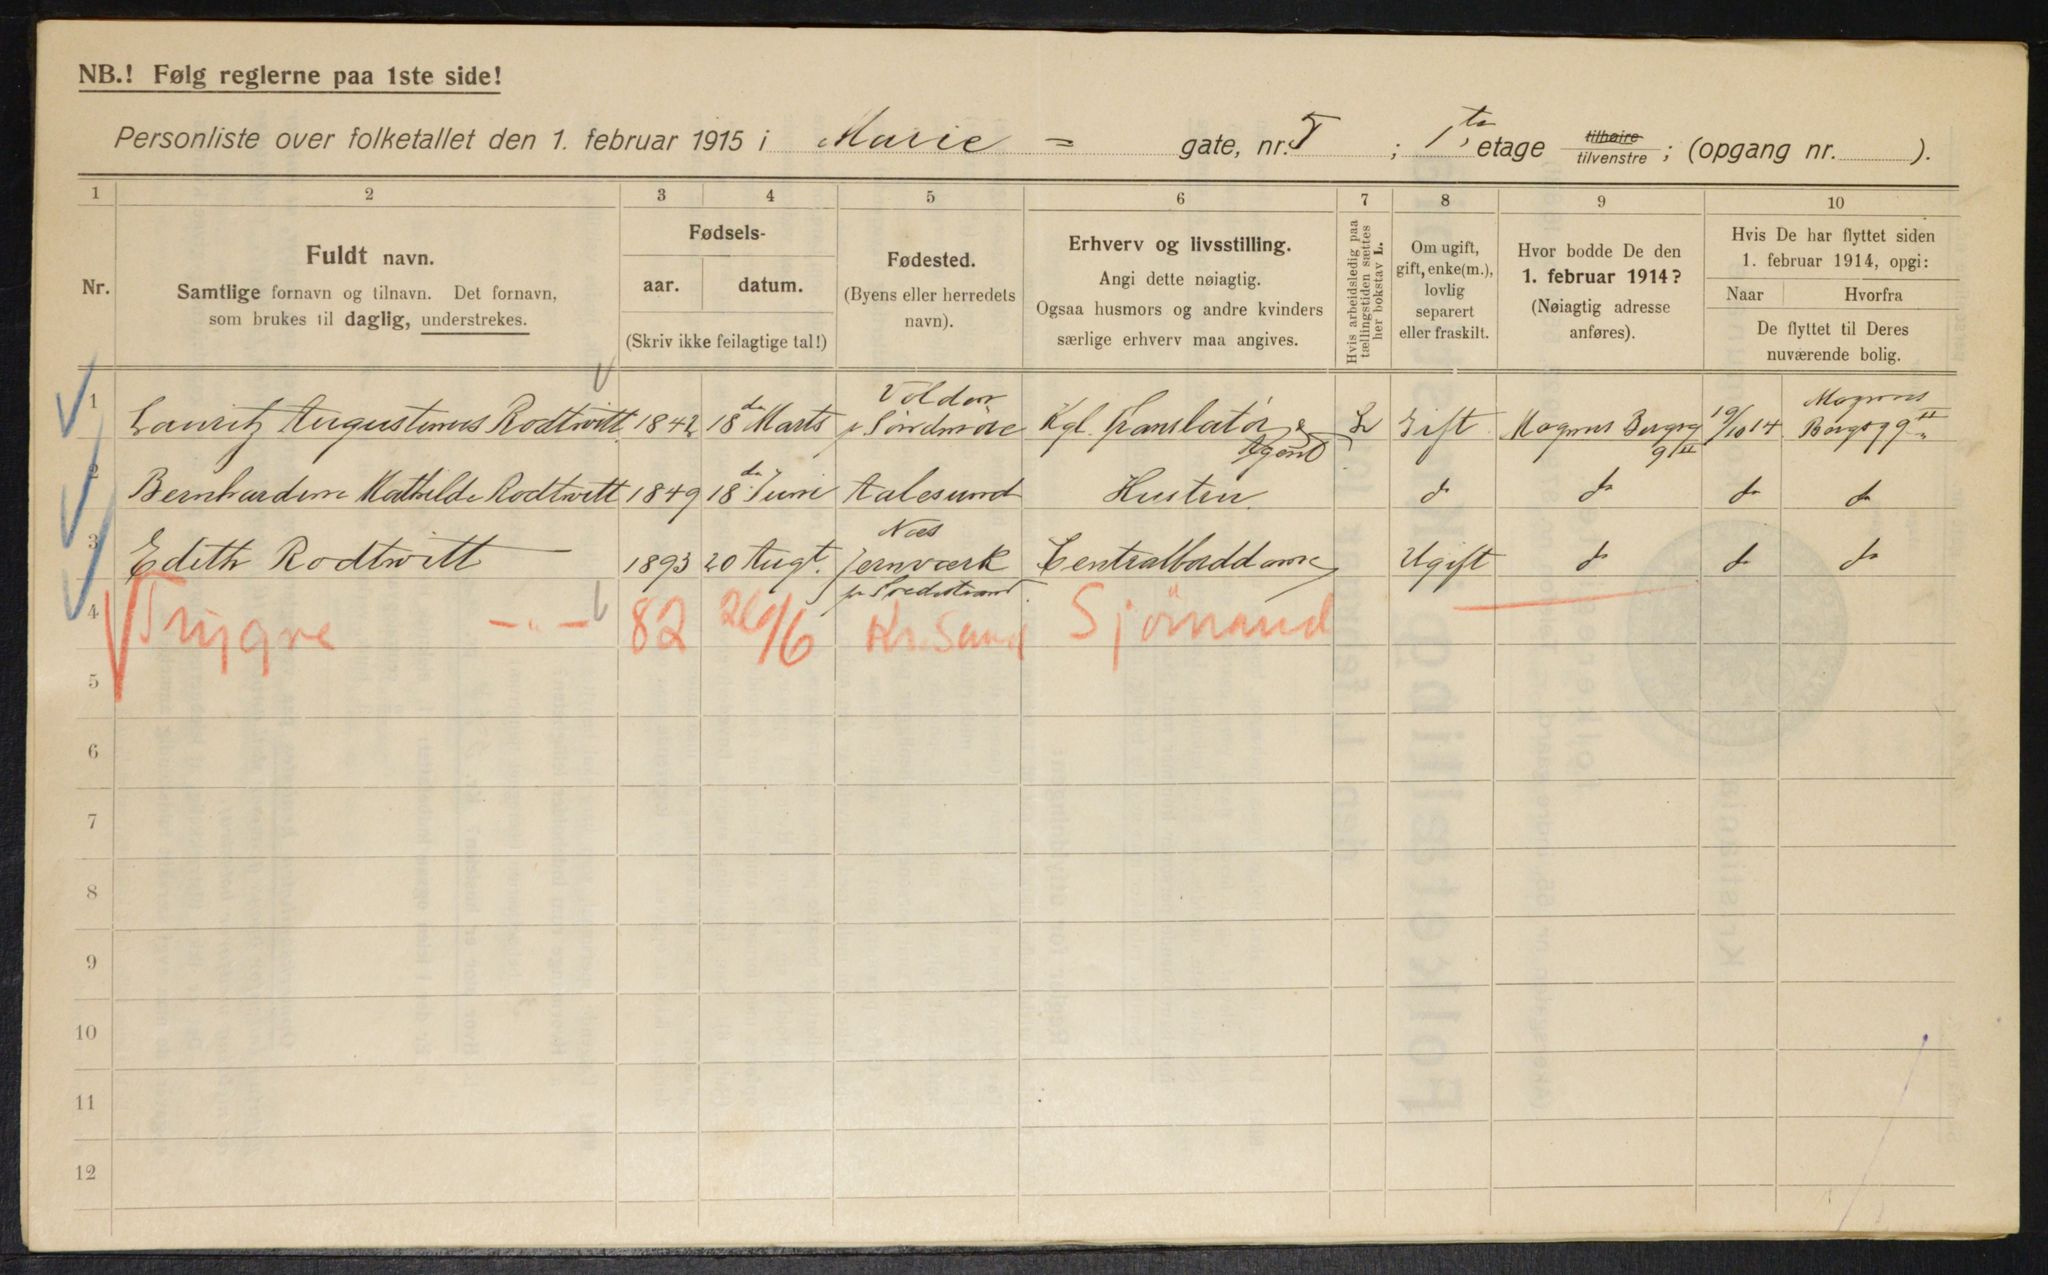 NB.! Følg reglerne paa 1ste side!
Personliste over folketallet den 1. februar 1915 i Marie = gate, nr. 5 ; 1ste etage tilhøire tilvenstre ; (opgang nr. ).
1 2 3 4 5 6 7 8 9 10
Nr.
Fuldt navn.
Samtlige fornavn og tilnavn. Det fornavn,
som brukes til daglig, understrekes.
Fødsels-
aar. datum.
(Skriv ikke feilagtige tal!)
Fødested.
(Byens eller herredets
navn).
Erhverv og livsstilling.
Angi dette nøiagtig.
Ogsaa husmors og andre kvinders
særlige erhverv maa angives.
Hvis arbeidsledig paa
tællingstiden sættes
her bokstav L.
Om ugift,
gift, enke(m.),
lovlig
separert
eller fraskilt.
Hvor bodde De den
1. februar 1914?
(Nøiagtig adresse
anføres).
Hvis De har flyttet siden
1. februar 1914, opgi:
Naar Hvorfra
De flyttet til Deres
nuværende bolig.
1 Lauritz Augustinus Rodtwitt 1842 18de Marts Volden p Söndmöre Kgl. Translatör & Agent L Gift Magnus Bergsg 9II 10/10 14 Magnus Bergsg 9II
2 Bernhardine Mathilde Rodtwitt 1849 18de Juni Aalesund Hustru do do do do
3 Edith Rodtwitt 1893 20 Augt. Næs Jernværk pr Tvedestrand Centralborddame Ugift do do do
4 Trygve -"- 82 26/6 Kr.Sand Sjömand
5
6
7
8
9
10
11
12